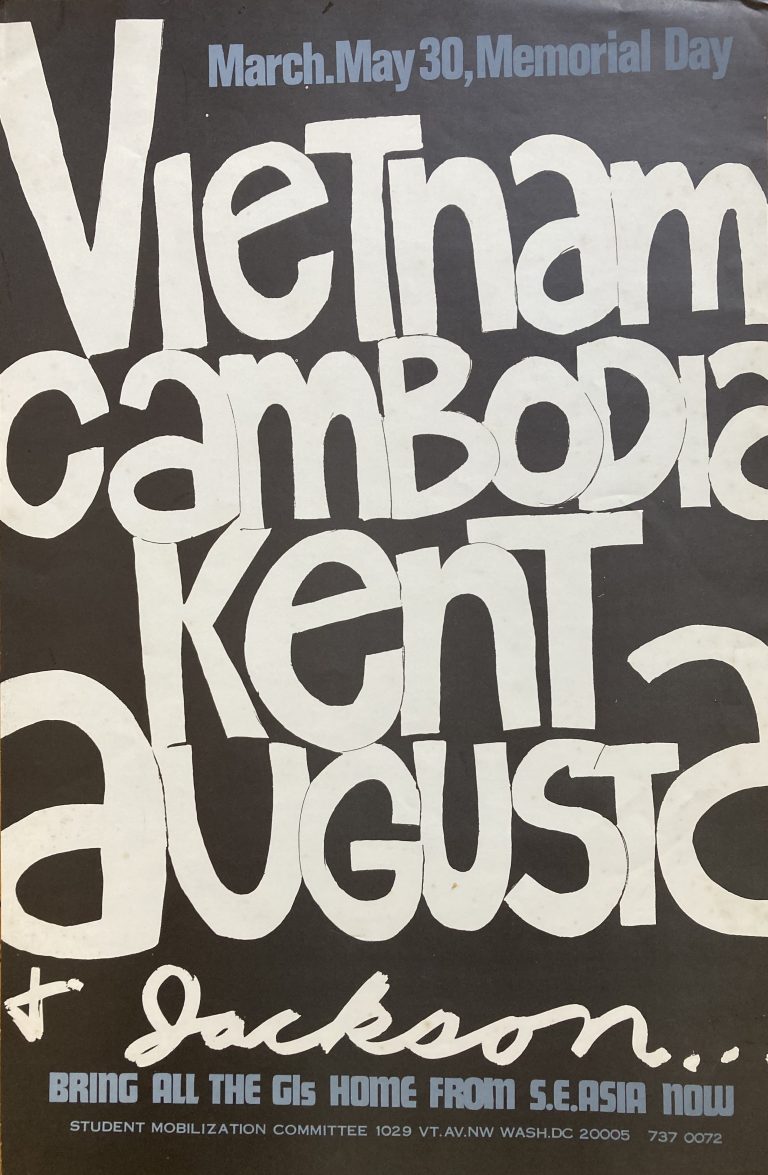 March.May 30, Memorial Day
Vietnam
Cambodia
Kent
Augusta
+ Jackson...
BRING ALL THE GIs HOME FROM S.E.ASIA NOW
STUDENT MOBILIZATION COMMITTEE 1029 VT.AV.NW WASH.DC 20005 737 0072